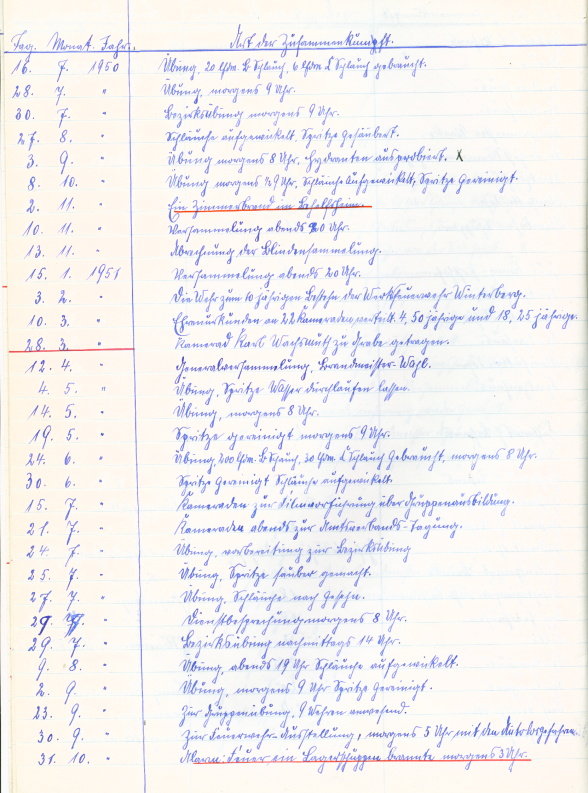 Tag. Monat. Jahr. Art der Zusammenkunft.
16. 7. 1950 Übung, 20 lfdm. B Schlauch, 6 lfdm C Schlauch gebraucht.
28. 7. " Übung, morgens 9 Uhr.
30. 7. " Bezirksübung morgens 9 Uhr.
27. 8. " Schläuche aufgewickelt, Spritze gesäubert.
3. 9. " Übung morgens 8 Uhr, Hydranten ausprobiert. X
8. 10. " Übung morgens ½9 Uhr, Schläuche Aufgewickelt, Spritze Gereinigt.
2. 11. " Ein Zimmerbrand im Behelfsheim.
10. 11. " Versammelung abends 20 Uhr.
13. 11. " Abrechnung der Blindensammelung.
15. 1. 1951 Versammelung abends 20 Uhr.
3. 2. " Die Wehr zum 10 jährigen Bestehn der Werkfeuerwehr Winterberg.
10. 3. " Ehrenurkunden an 22 Kameraden verteilt. 4, 50 jährige und 18, 25 jährige.
28. 3. " Kamerad Karl Wachsmuth zu Grabe getragen.
12. 4. " Generalversammelung, Brandmeister-Wahl.
4. 5. " Übung, Spritze Wasser durchlaufen lassen.
14. 5. " Übung, morgens 8 Uhr.
19. 5. " Spritze gereinigt morgens 9 Uhr.
24. 6. " Übung, 200 lfdm. B Schlauch, 30 lfdm. C Schlauch Gebraucht, morgens 8 Uhr.
30. 6. " Spritze Gereinigt Schläuche aufgewickelt.
15. 7. " Kameraden zur Filmvorführung über Gruppenausbildung.
21. 7. " Kameraden abends zur Amtsverbands-Tagung.
24. 7. " Übung, vorbereitung zur Bezirksübung
25. 7. " Übung, Spritze sauber gemacht.
27. 7. " Übung, Schläuche nach Gesehn.
29. 7. " Dienstbesprechung morgens 8 Uhr.
29. 7. " Bezirksübung nachmittags 14 Uhr.
9. 8. " Übung, abends 19 Uhr Schläuche aufgewickelt.
2. 9. " Übung, morgens 9 Uhr Spritze Gereinigt.
23. 9. " Zur Gruppenübung, 9 Wehren anwesend.
30. 9. " Zur Feuerwehr-Ausstellung, morgens 5 Uhr mit den Auto losgefahren.
31. 10. " Alarm: Feuer ein Lagerschuppen brannte morgens 3 Uhr.